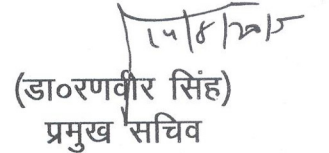 14/8/2015
(डा०रणवीर सिंह)
प्रमुख सचिव